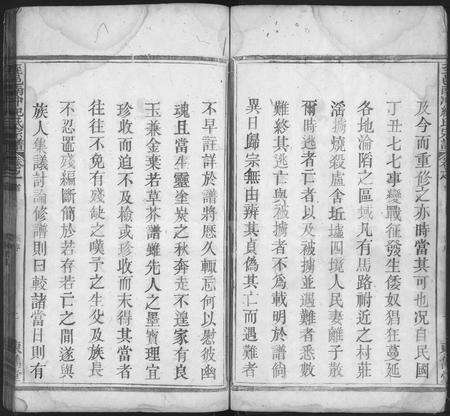 及今而重修之亦時當其可也况自民國
丁丑七七事變戰征發生倭奴猖狂蔓延
各地淪陷之區域凡有馬路附近之村莊
淫擄燒殺盧舍坵墟四境人民妻離子散
爾時逃者亡者以及被擄並遇難者悉數
難終其逃亡與被擄者不為載明於譜倘
異日歸宗無由辨其貞僞其亡而遇難者
不早註詳於譜將歷久輒忘何以慰彼幽
魂且當生靈塗炭之秋奔走不遑家有良
玉兼金棄若草芥譜雖先人之墨寶理宜
珍收而迫不及檢或珍收而未得其當者
往往不免有殘缺之嘆予之生父及族長
不忍眂殘編斷簡於若存若亡之間遂與
族人集議討論修譜則曰較諸當日則有